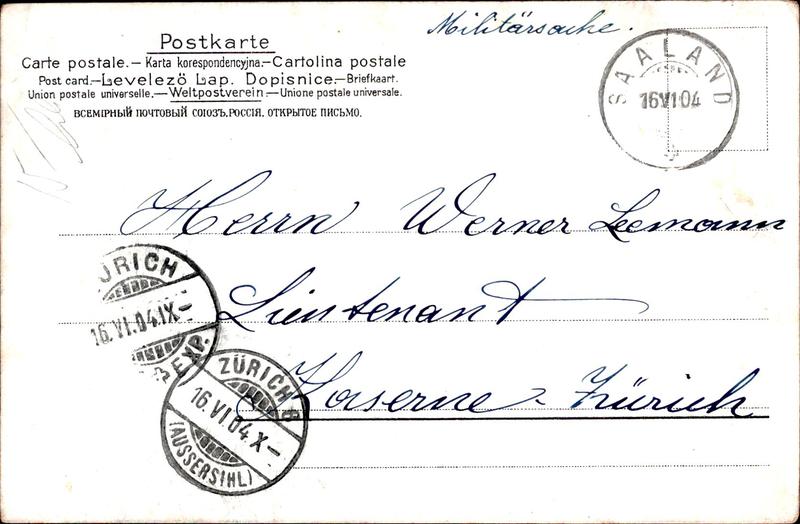 Militärsache.
Postkarte
Carte postale.—Karta korespondencyjna.—Cartolina postale
Post card.—Levelező Lap. Dopisnice.—Briefkaart.
Union postale universelle.—Weltpostverein.—Unione postale universale.
ВСЕМІРНЫЙ ПОЧТОВЫЙ СОЮЗЪ. РОССІЯ. ОТКРЫТОЕ ПИСЬМО.
SAALAND
16 VI 04
Herrn Werner Leemann
Lieutenant
Kaserne - Zürich
ÜRICH
16.VI.04.IX—
EXP.
ZÜRICH 6
16.VI.04.X—
(AUSSERSIHL)